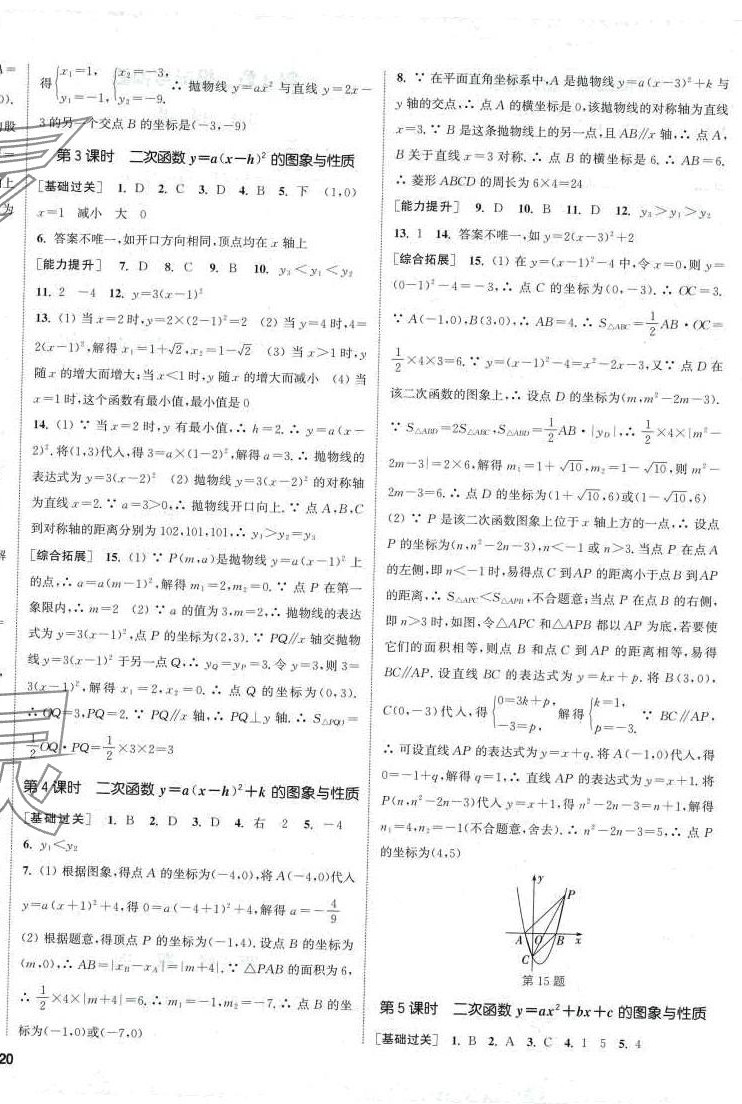 得{x₁=1, y₁=-1, {x₂=-3, y₂=-9. ∴ 抛物线 y=ax² 与直线 y=2x-
3的另一个交点 B 的坐标是(-3,-9)
第 3 课时 二次函数 y=a(x-h)² 的图象与性质
[基础过关] 1. D 2. C 3. D 4. B 5. 下 (1,0)
x=1 减小 大 0
6. 答案不唯一,如开口方向相同,顶点均在 x 轴上
[能力提升] 7. D 8. C 9. B 10. y₃<y₁<y₂
11. 2 -4 12. y=3(x-1)²
13. (1) 当 x=2时,y=2×(2-1)²=2 (2) 当 y=4时,4=
2(x-1)²,解得 x₁=1+√2,x₂=1-√2 (3) 当 x>1时,y
随 x 的增大而增大;当 x<1时,y 随 x 的增大而减小 (4) 当
x=1时,这个函数有最小值,最小值是0
14. (1) ∵ 当 x=2 时,y 有最小值,∴ h=2. ∴ y=a(x-
2)². 将(1,3)代入,得 3=a×(1-2)²,解得 a=3. ∴ 抛物线的
表达式为 y=3(x-2)² (2) 抛物线 y=3(x-2)² 的对称轴
为直线 x=2. ∵ a=3>0,∴ 抛物线开口向上. ∵ 点 A,B,C
到对称轴的距离分别为 102,101,101,∴ y₁>y₂=y₃
[综合拓展] 15. (1) ∵ P(m,a)是抛物线 y=a(x-1)² 上
的点,∴ a=a(m-1)²,解得 m₁=2,m₂=0. ∵ 点 P 在第一
象限内,∴ m=2 (2) ∵ a 的值为3,m=2,∴ 抛物线的表达
式为 y=3(x-1)²,点 P 的坐标为(2,3). ∵ PQ∥x 轴交抛物
线 y=3(x-1)² 于另一点 Q,∴ y_Q=y_P=3. 令 y=3,则 3=
3(x-1)²,解得 x₁=2,x₂=0. ∴ 点 Q 的坐标为(0,3).
∴ OQ=3,PQ=2. ∵ PQ∥x 轴,∴ PQ⊥y 轴. ∴ S△PQO=
1/2 OQ·PQ=1/2×3×2=3
第 4 课时 二次函数 y=a(x-h)²+k 的图象与性质
[基础过关] 1. B 2. D 3. D 4. 右 2 5. -4
6. y₁<y₂
7. (1) 根据图象,得点 A 的坐标为(-4,0),将 A(-4,0)代入
y=a(x+1)²+4,得 0=a(-4+1)²+4,解得 a=-4/9
(2) 根据题意,得顶点 P 的坐标为(-1,4). 设点 B 的坐标为
(m,0),∴ AB=|x_B-x_A|=|m+4|. ∵ △PAB 的面积为 6,
∴ 1/2×4×|m+4|=6. ∴ m₁=-1,m₂=-7. ∴ 点 B 的坐
标为(-1,0)或(-7,0)
20
8. ∵ 在平面直角坐标系中,A 是抛物线 y=a(x-3)²+k 与
y 轴的交点,∴ 点 A 的横坐标是0,该抛物线的对称轴为直线
x=3. ∵ B 是这条抛物线上的另一点,且 AB∥x 轴,∴ 点 A,
B 关于直线 x=3 对称. ∴ 点 B 的横坐标是 6. ∴ AB=6.
∴ 菱形 ABCD 的周长为 6×4=24
[能力提升] 9. D 10. B 11. D 12. y₃>y₁>y₂
13. 1 14. 答案不唯一,如 y=2(x-3)²+2
[综合拓展] 15. (1) 在 y=(x-1)²-4 中,令 x=0,则 y=
(0-1)²-4=-3,∴ 点 C 的坐标为(0,-3). ∴ OC=3.
∵ A(-1,0),B(3,0),∴ AB=4. ∴ S△ABC=1/2 AB·OC=
1/2×4×3=6. ∵ y=(x-1)²-4=x²-2x-3,又∵ 点 D 在
该二次函数的图象上,∴ 设点 D 的坐标为(m,m²-2m-3).
∵ S△ABD=2S△ABC,S△ABD=1/2 AB·|y_D|,∴ 1/2×4×|m²-
2m-3|=2×6,解得 m₁=1+√10,m₂=1-√10,则 m²-
2m-3=6. ∴ 点 D 的坐标为(1+√10,6)或(1-√10,6)
(2) ∵ P 是该二次函数图象上位于 x 轴上方的一点,∴ 设点
P 的坐标为(n,n²-2n-3),n<-1 或 n>3. 当点 P 在点 A
的左侧,即 n<-1时,易得点 C 到 AP 的距离小于点 B 到 AP
的距离,∴ S△APC<S△APB,不合题意;当点 P 在点 B 的右侧,
即 n>3 时,如图,令△APC 和△APB 都以 AP 为底,若要使
它们的面积相等,则点 B 和点 C 到 AP 的距离相等,易得
BC∥AP. 设直线 BC 的表达式为 y=kx+p. 将 B(3,0),
C(0,-3)代入,得{0=3k+p, -3=p, 解得{k=1, p=-3. ∵ BC∥AP,
∴ 可设直线 AP 的表达式为 y=x+q. 将 A(-1,0)代入,得
0=-1+q,解得 q=1,∴ 直线 AP 的表达式为 y=x+1. 将
P(n,n²-2n-3)代入 y=x+1,得 n²-2n-3=n+1,解得
n₁=4,n₂=-1(不合题意,舍去). ∴ n²-2n-3=5,∴ 点 P
的坐标为(4,5)
y
P
A O B x
C
第15题
第 5 课时 二次函数 y=ax²+bx+c 的图象与性质
[基础过关] 1. B 2. A 3. C 4. 1 5 5. 4